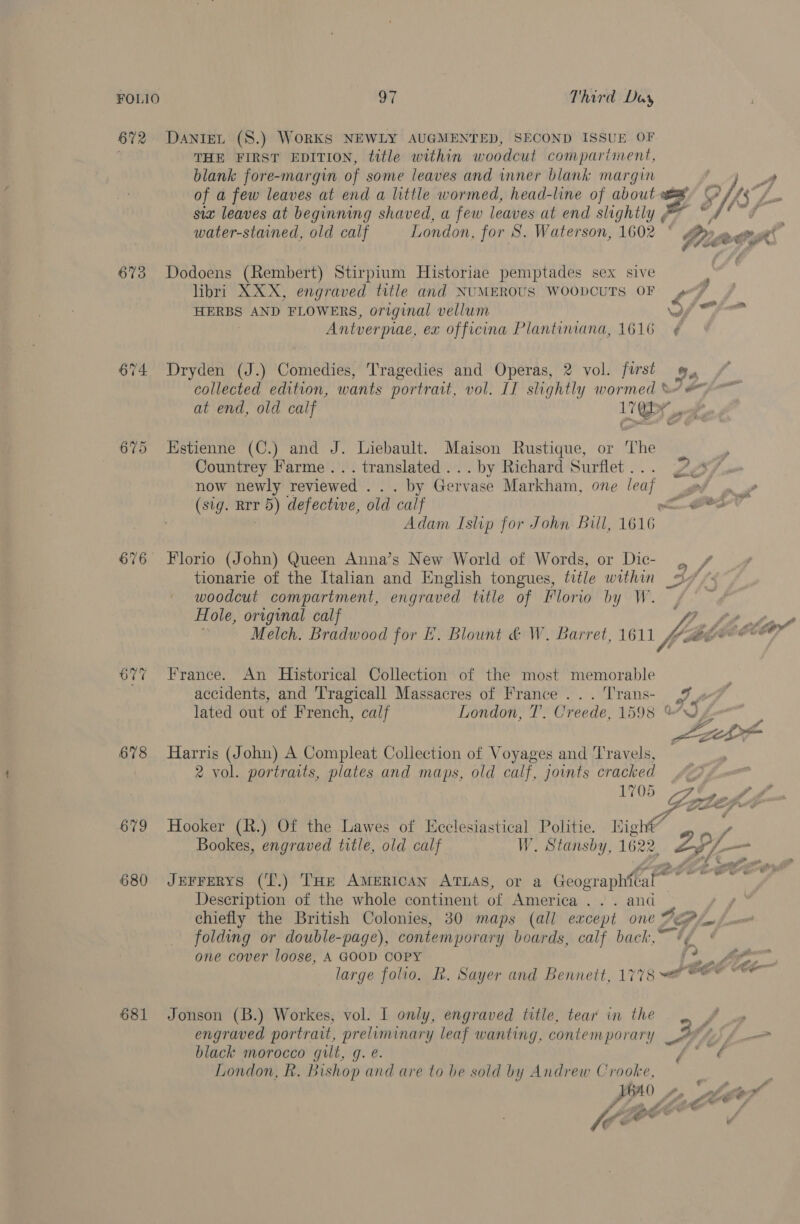 FOLIO 97 Third Day
672 DANIEL (S.) WORKS NEWLY AUGMENTED, SECOND ISSUE OF
THE FIRST EDITION, title within woodcut compartment,
blank fore-margin of some leaves and inner blank margin
of a few leaves at end a little wormed, head-line of about
six leaves at beginning shaved, a few leaves at end slightly
water-stained, old calf London, for S. Waterson, 1602
673 Dodoens (Rembert) Stirpium Historiae pemptades sex sive
libri XXX, engraved title and NUMEROUS WOODCUTS OF
HERBS AND FLOWERS, original vellum
Antverpiae, ex officina Plantiniana, 1616
674 Dryden (J.) Comedies, Tragedies and Operas, 2 vol. first
collected edition, wants portrait, vol. II slightly wormed
at end, old calf
675 Estienne (C.) and J. Liebault. Maison Rustique, or The
Countrey Farme . . . translated . . . by Richard Surflet . . .
now newly reviewed . . . by Gervase Markham, one leaf
(sig. Rrr 5) defective, old calf
Adam Islip for John Bill, 1616
676 Florio (John) Queen Anna's New World of Words, or Dic-
tionarie of the Italian and English tongues, title within
woodcut compartment, engraved title of Florio by W.
Hole, original calf
Melch. Bradwood for E. Blount & W. Barret, 1611
677 France. An Historical Collection of the most memorable
accidents, and Tragicall Massacres of France . . . Trans-
lated out of French, calf London, T. Creede, 1598
678 Harris (John) A Compleat Collection of Voyages and Travels,
2 vol. portraits, plates and maps, old calf, joints cracked
1705
679 Hooker (R.) Of the Lawes of Ecclesiastical Politie. Eight
Bookes, engraved title, old calf W. Stansby, 1622
680 JEFFERYS (T.) THE AMERICAN ATLAS, or a Geographical
Description of the whole continent of America . . . and
chiefly the British Colonies, 30 maps (all except one
folding or double-page), contemporary boards, calf back,
one cover loose, A GOOD COPY
large folio. R. Sayer and Bennett, 1778
681 Jonson (B.) Workes, vol. I only, engraved title, tear in the
engraved portrait, preliminary leaf wanting, contemporary
black morocco gilt, g. e.
London, R. Bishop and are to be sold by Andrew Crooke,